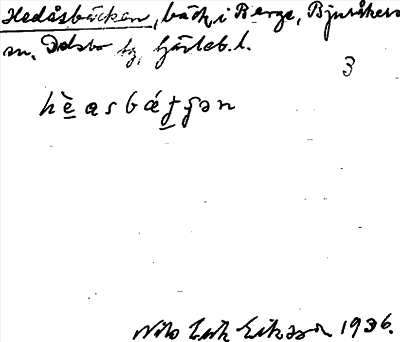 Hedåsbäcken, bäck i Berge, Bjuråkers
sn, Delsbo tg, Gävleb. l.
3
hèasbáʈʃən
Nils Erik Eriksson 1936.